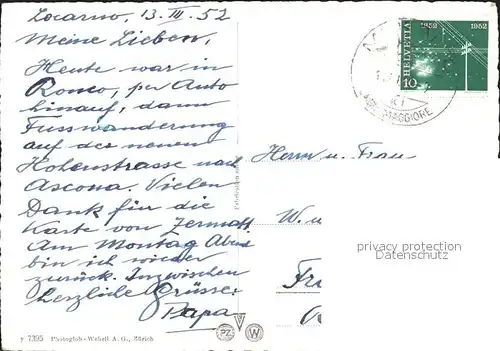 Locarno, 13. III. 52
Meine Lieben,
Heute war in
Ronco, per Auto
hinauf, dann
Fusswanderung
auf der neuen
Höhenstrasse nach
Ascona. Vielen
Dank für die
Karte von Zermatt.
Am Montag Abend
bin ich wieder
zurück. Inzwischen
herzliche Grüsse
Papa
y 7395 Photoglob-Wehrli A. G., Zürich
PZ W
1852 1952
HELVETIA
10
MAGGIORE
Herrn u. Frau
W. u
privacy protection
Datenschutz
Fr